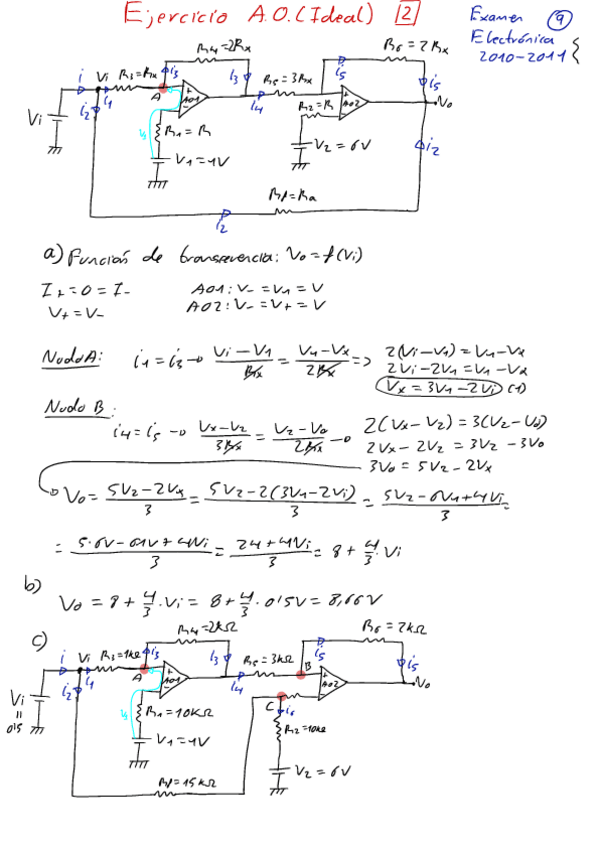 Ejercicio A.O. (Ideal) 2
Examen 9
Electrónica
2010-2011
R4=2Rx
R6=2Rx
i Vi R3=Rx i3
i3 R5=3Rx
i5
i5
A
i1
i2
AO1
i4
R2=R
AO2
Vo
Vi
R1=R
V1=1V
V2=6V
i2
i2
a) Función de transferencia: Vo=f(Vi)
I+=0=I-
AO1: V-=V1=V
V+=V-
AO2: V-=V+=V
Nodo A: i1=i3 → Vi-V1/Rx = V1-Vx/2Rx => 2(Vi-V1)=V1-Vx
2Vi-2V1=V1-Vx
Vx=3V1-2Vi (1)
Nodo B:
i4=i5 → Vx-V2/3Rx = V2-Vo/2Rx → 2(Vx-V2)=3(V2-Vo)
2Vx-2V2=3V2-3Vo
3Vo=5V2-2Vx
Vo= 5V2-2Vx/3 = 5V2-2(3V1-2Vi)/3 = 5V2-6V1+4Vi/3 =
= 5·6V-6·1V+4Vi/3 = 24+4Vi/3 = 8+4/3·Vi
b)
Vo=8+4/3·Vi=8+4/3·0'5V=8,66V
c)
R4=2kΩ
R6=2kΩ
i Vi R3=1kΩ i3
i3 R5=3kΩ
i5
i5
A
B
i1
i2
AO1
i4
AO2
Vo
C
i6
Vi
=
0'5
R1=10kΩ
R2=10kΩ
V1=1V
V2=6V
Rf=15kΩ